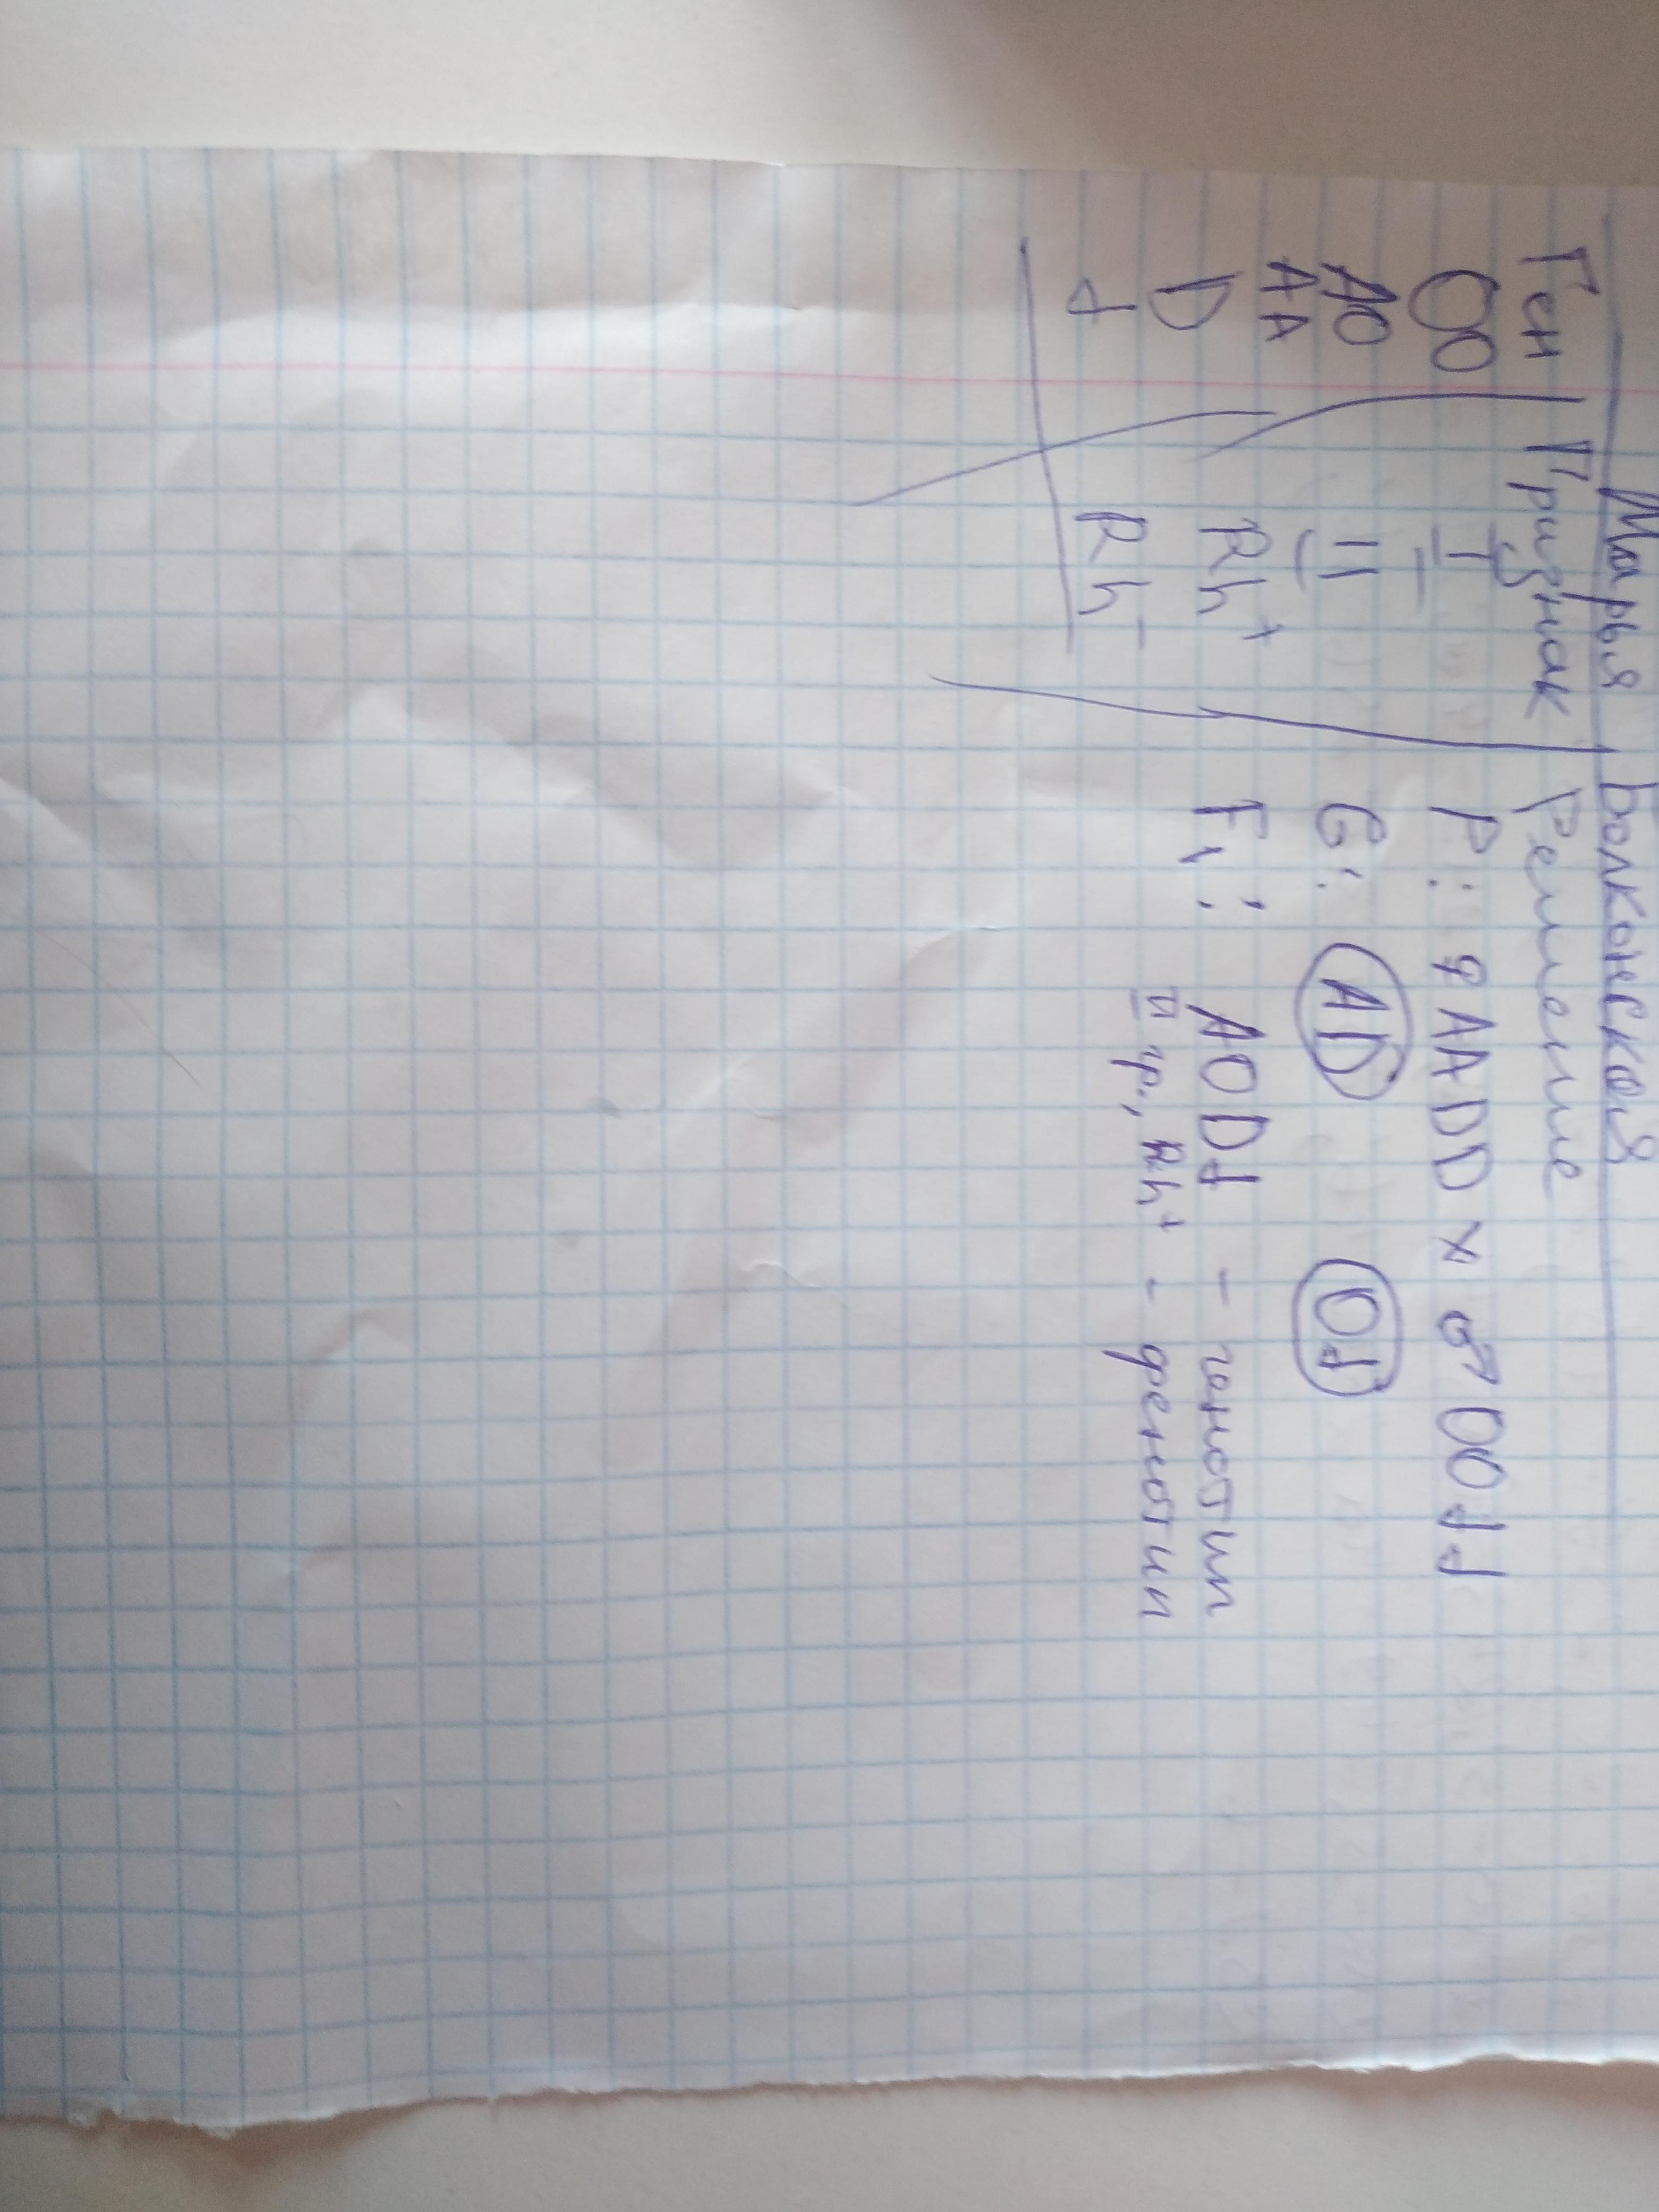 Марья Болконская
Ген Признак Решение
OO I P: ♀ AADD × ♂ OOdd
AO II G: AD Od
AA
D Rh+ F1: AODd - генотип
d Rh- II гр., Rh+ - фенотип